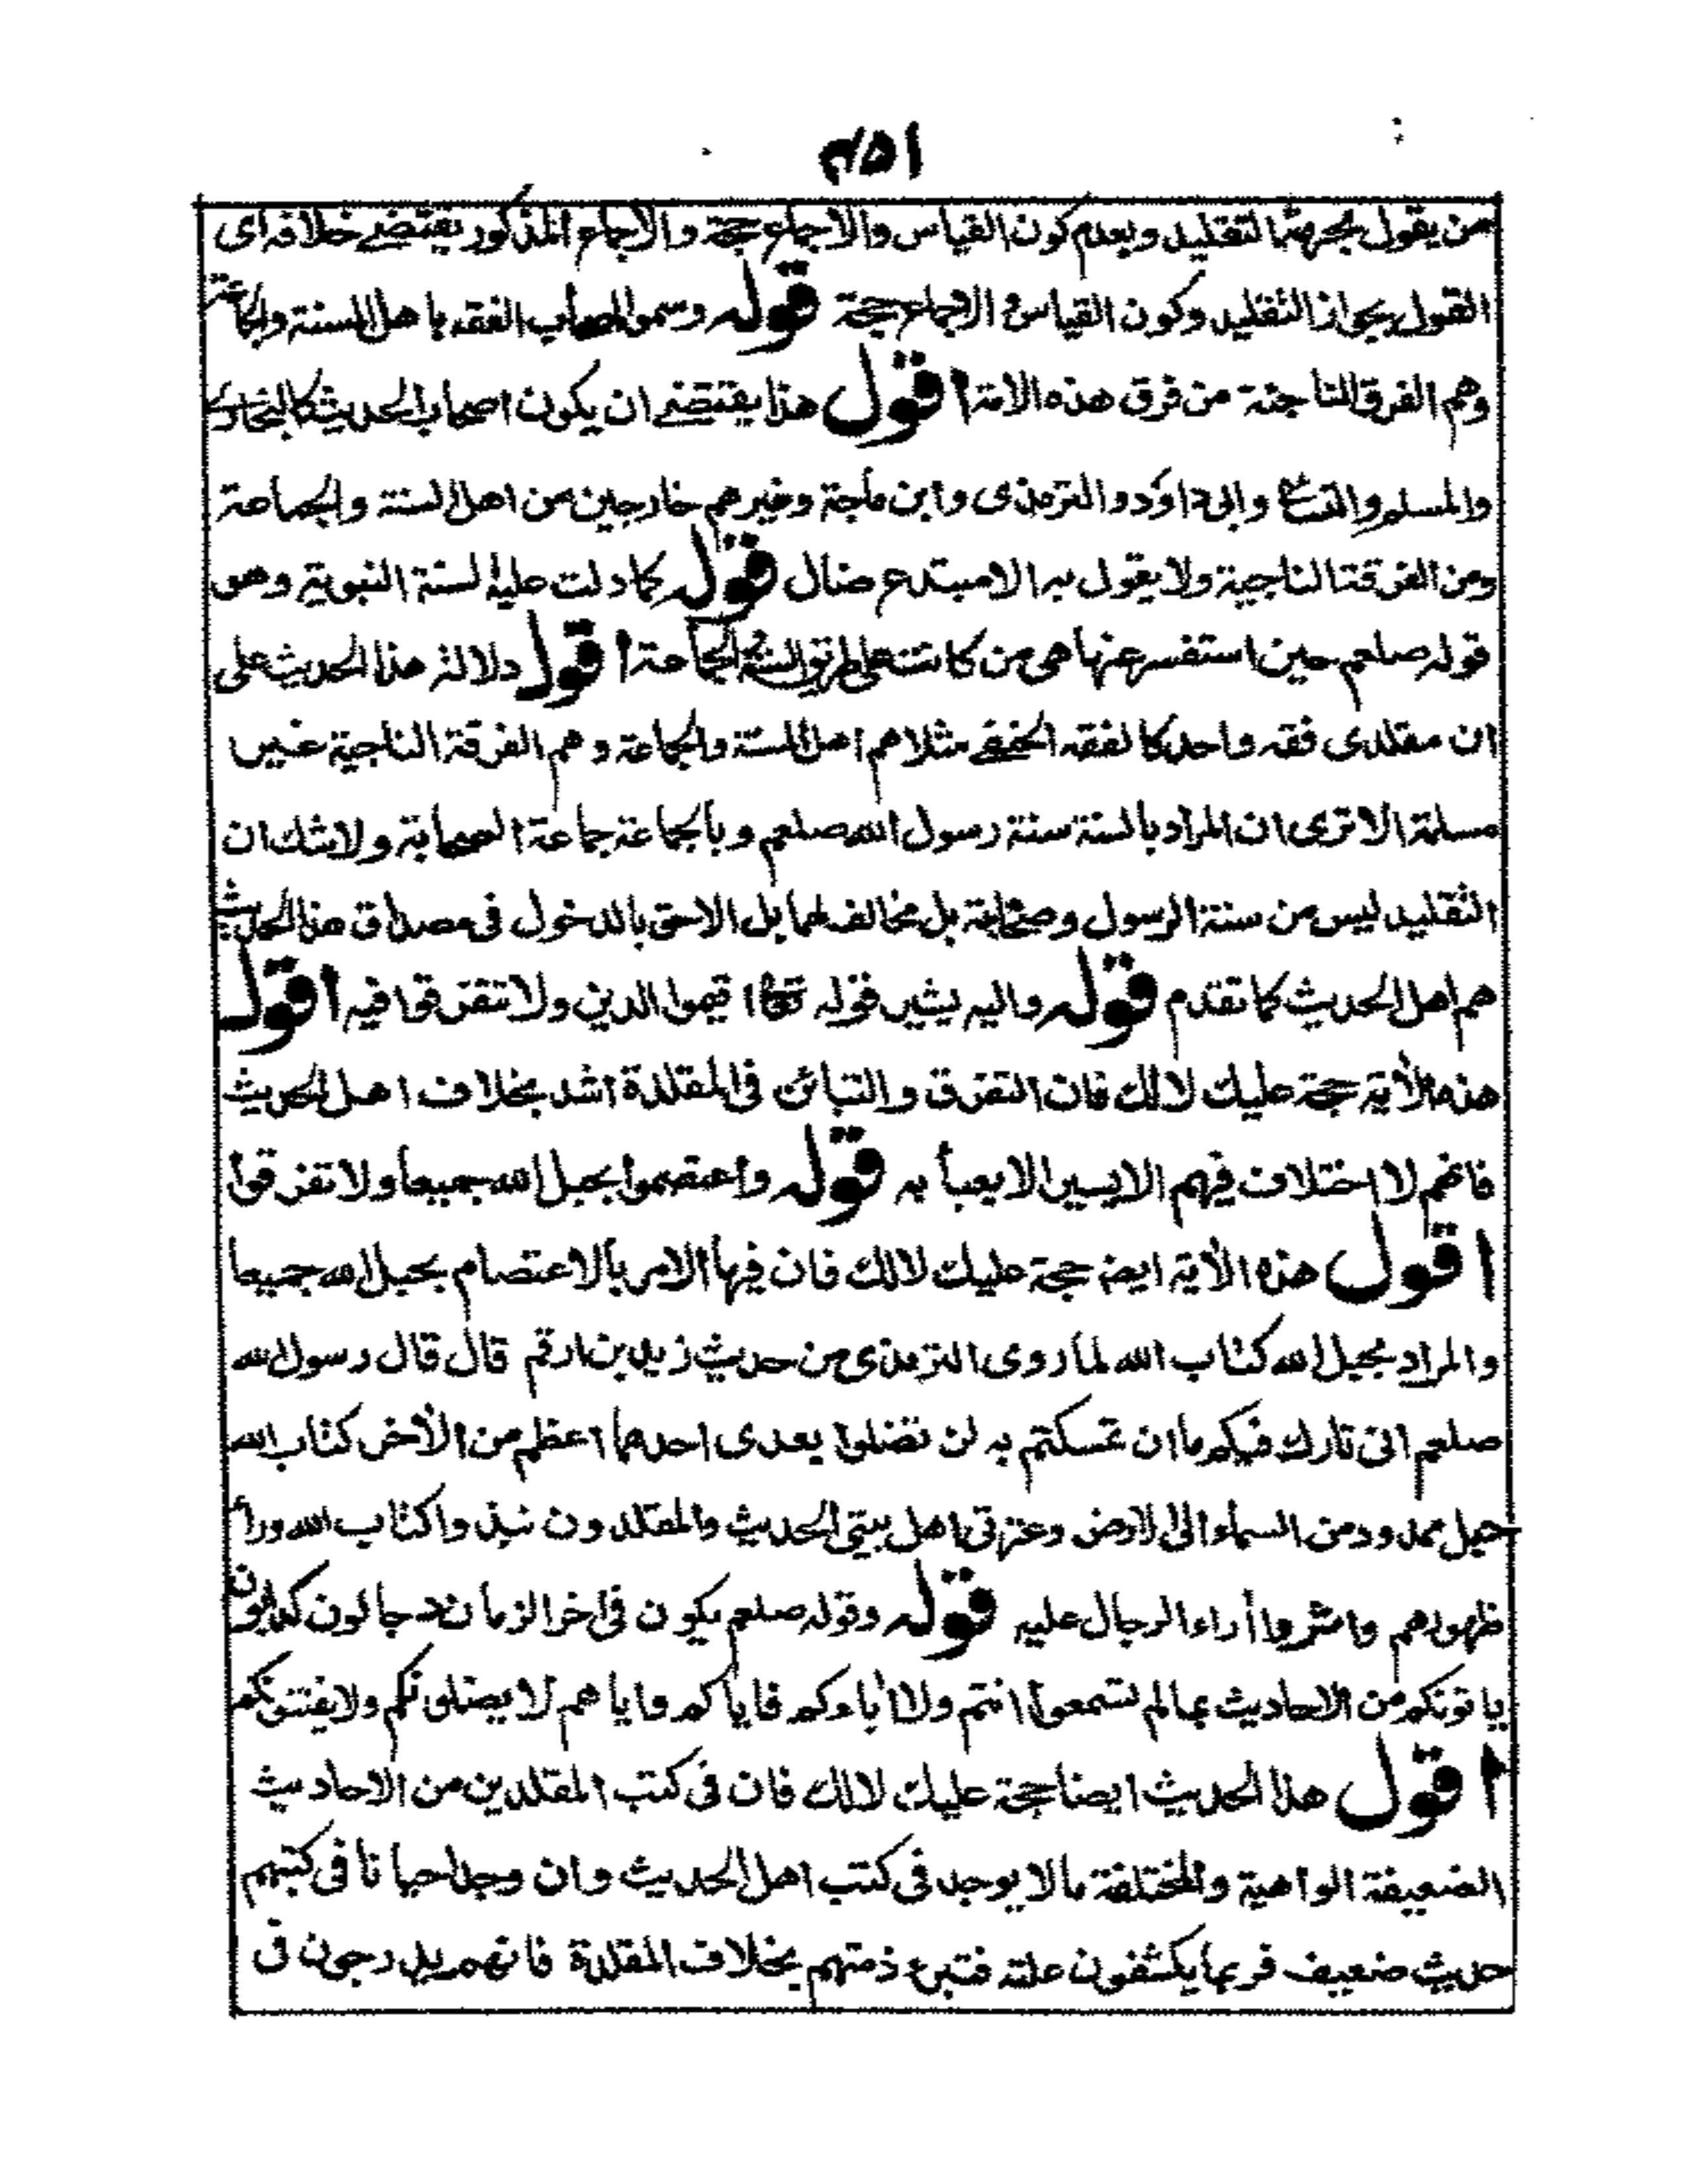 ٤٥١
من يقول بحرمة التقليد وبعدم كون القياس والاجماع حجة والاجماع المذكور يقتضے خلافه اى
القول بجواز التقليد وكون القياس والاجماع حجة قوله وسموا اصحاب الفقه باهل السنة والجماعة
وهم الفرقة الناجية من فرق هذه الامة اقول هذا يقتضے ان يكون اصحاب الحديث كالبخارى
والمسلم والنسائى وابى داؤد والترمذى وابن ماجة وغيرهم خارجين من اهل السنة والجماعة
ومن الفرقة الناجية ولا يقول به الا مبتدع ضال قوله كما دلت عليه السنة النبوية وهو
قوله صلعم حين استفسر عنها هى من كانت على طريق السنة والجماعة اقول دلالة هذا الحديث على
ان مقلدى فقه واحد كالفقه الحنفے مثلا هم اهل السنة والجماعة وهم الفرقة الناجية غير
مسلمة الا ترى ان المراد بالسنة سنة رسول الله صلعم وبالجماعة جماعة الصحابة ولا شك ان
التقليد ليس من سنة الرسول وصحابة بل مخالف لهما بل الاحق بالدخول فى مصداق هذا الحديث
هم اهل الحديث كما تقدم قوله واليه يشير قوله تعالى اقيموا الدين ولا تتفرقوا فيه اقول
هذه الأية حجة عليك لا لك فان التفرق والتبائن فى المقلدة اشد بخلاف اهل الحديث
فانهم لا اختلاف فيهم الا يسيرا لا يعبأ به قوله واعتصموا بحبل الله جميعا ولا تفرقوا
اقول هذه الأية ايضا حجة عليك لا لك فان فيها الامر بالاعتصام بحبل الله جميعا
والمراد بحبل الله كتاب الله لما روى الترمذى من حديث زيد بن ارقم قال قال رسول الله
صلعم انى تارك فيكم ما ان تمسكتم به لن تضلوا بعدى احدهما اعظم من الأخر كتاب الله
حبل ممدود من السماء الى الارض وعترتى اهل بيتى الحديث والمقلدون نبذوا كتاب الله وراء
ظهورهم واثروا أراء الرجال عليه قوله وقوله صلعم يكون فى اخر الزمان دجالون كذابون
ياتونكم من الاحاديث بما لم تسمعوا انتم ولا أباءكم فاياكم واياهم لا يضلونكم ولا يفتنونكم
اقول هذا الحديث ايضا حجة عليك لا لك فان فى كتب المقلدين من الاحاديث
الضعيفة الواهية والمختلفة ما لا يوجد فى كتب اهل الحديث وان وجد احيانا فى كتبهم
حديث ضعيف فربما يكشفون علته فتبرء ذمتهم بخلاف المقلدة فانهم يدرجون فى